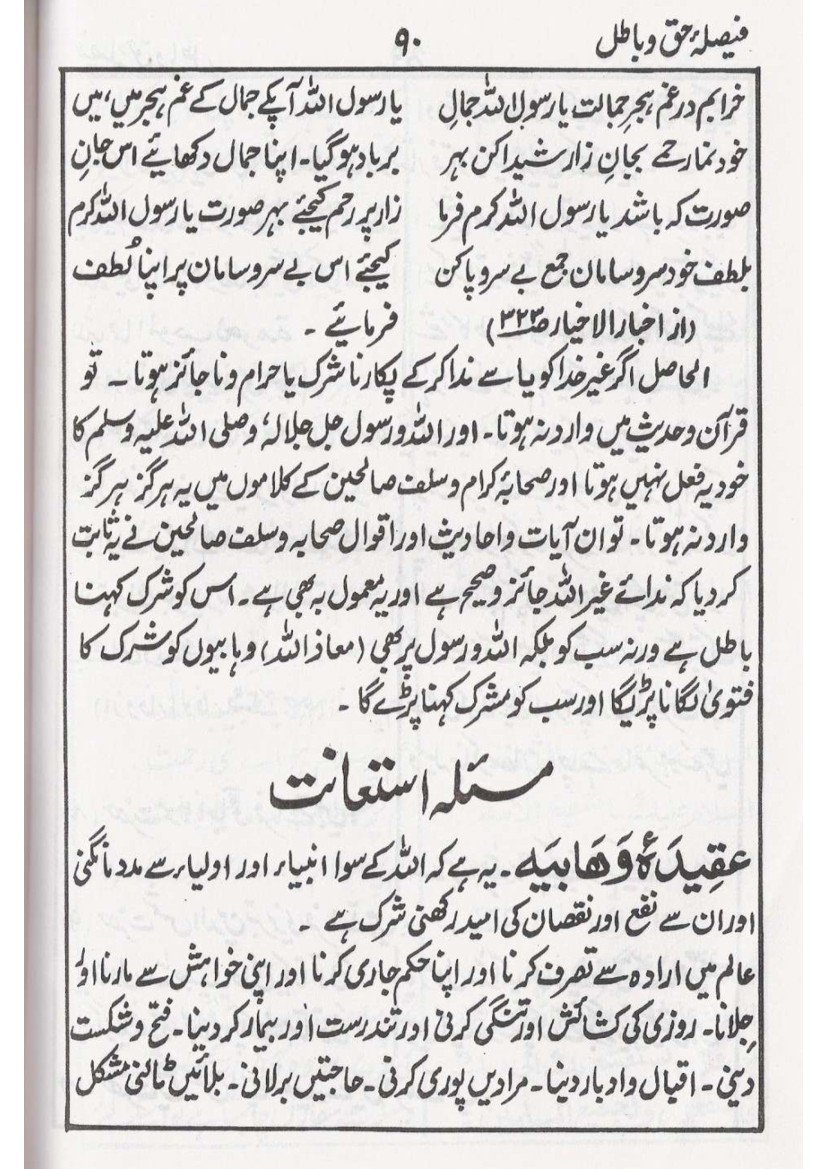 فیصلۂ حق و باطل
۹۰
خرابم در غم ہجر جمالت یا رسول اللہ جمالِ
خود نما رحمے بجانِ زار شیدا کن بہر
صورت کہ باشد یا رسول اللہ کرم فرما
بلطف خود سر و سامان جمع بے سر و پا کن
(از اخبار الاخیار صـ۳۲۳)
یا رسول اللہ آپکے جمال کے غم ہجر میں، میں
برباد ہوگیا۔ اپنا جمال دکھائیے اس جانِ
زار پر رحم کیجئے بہر صورت یا رسول اللہ کرم
کیجئے اس بے سر و سامان پر اپنا لُطف
فرمائیے ۔
الحاصل اگر غیر خدا کو یا سے ندا کر کے پکارنا شرک یا حرام و ناجائز ہوتا ۔ تو
قرآن و حدیث میں وارد نہ ہوتا۔ اور اللہ و رسول جل جلالہٗ وصلی اللہ علیہ وسلم کا
خود یہ فعل نہیں ہوتا اور صحابۂ کرام و سلف صالحین کے کلاموں میں یہ ہرگز ہرگز
وارد نہ ہوتا ۔ تو ان آیات و احادیث اور اقوال صحابہ و سلف صالحین نے یہ ثابت
کر دیا کہ ندائے غیر اللہ جائز و صحیح ہے اور یہ معمول بہ بھی ہے۔ اس کو شرک کہنا
باطل ہے ورنہ سب کو بلکہ اللہ و رسول پر بھی (معاذ اللہ) وہابیوں کو شرک کا
فتویٰ لگانا پڑیگا اور سب کو مشرک کہنا پڑے گا ۔
مسئلہ استعانت
عقیدۂ وَھَابیَہ ۔ یہ ہے کہ اللہ کے سوا انبیاء اور اولیاء سے مدد مانگنی
اور ان سے نفع اور نقصان کی امید رکھنی شرک ہے ۔
عالم میں ارادہ سے تصرف کرنا اور اپنا حکم جاری کرنا اور اپنی خواہش سے مارنا اور
جِلانا۔ روزی کی کشائش اور تنگی کرنی اور تندرست اور بیمار کر دینا۔ فتح و شکست
دینی ۔ اقبال و ادبار دینا۔ مرادیں پوری کرنی۔ حاجتیں برلانی ۔ بلائیں ٹالنی مشکل